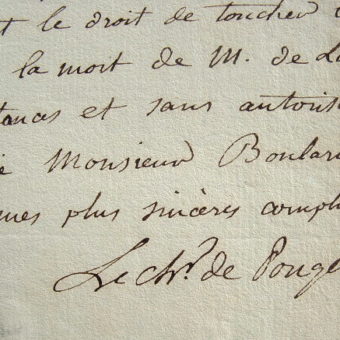 t le droit de toucher
la mort de M. de La
tances et sans autoris
Monsieur Boulard
mes plus sincères compli
Le Chr. de Pouge